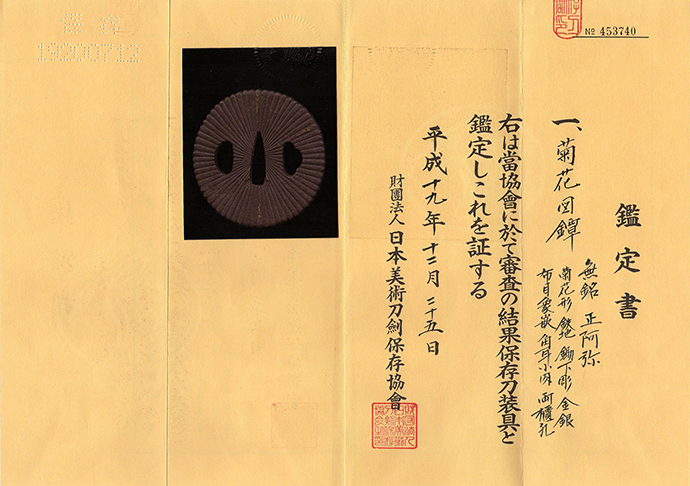 № 453740
鑑定書
一、菊花図鐔
無銘 正阿弥
菊花形 鉄地 鋤下彫 金銀
布目象嵌 角耳小肉 両櫃孔
右は當協會に於て審査の結果保存刀装具と
鑑定しこれを証する
平成十九年十二月二十五日
財團法人 日本美術刀劍保存協會
19200712